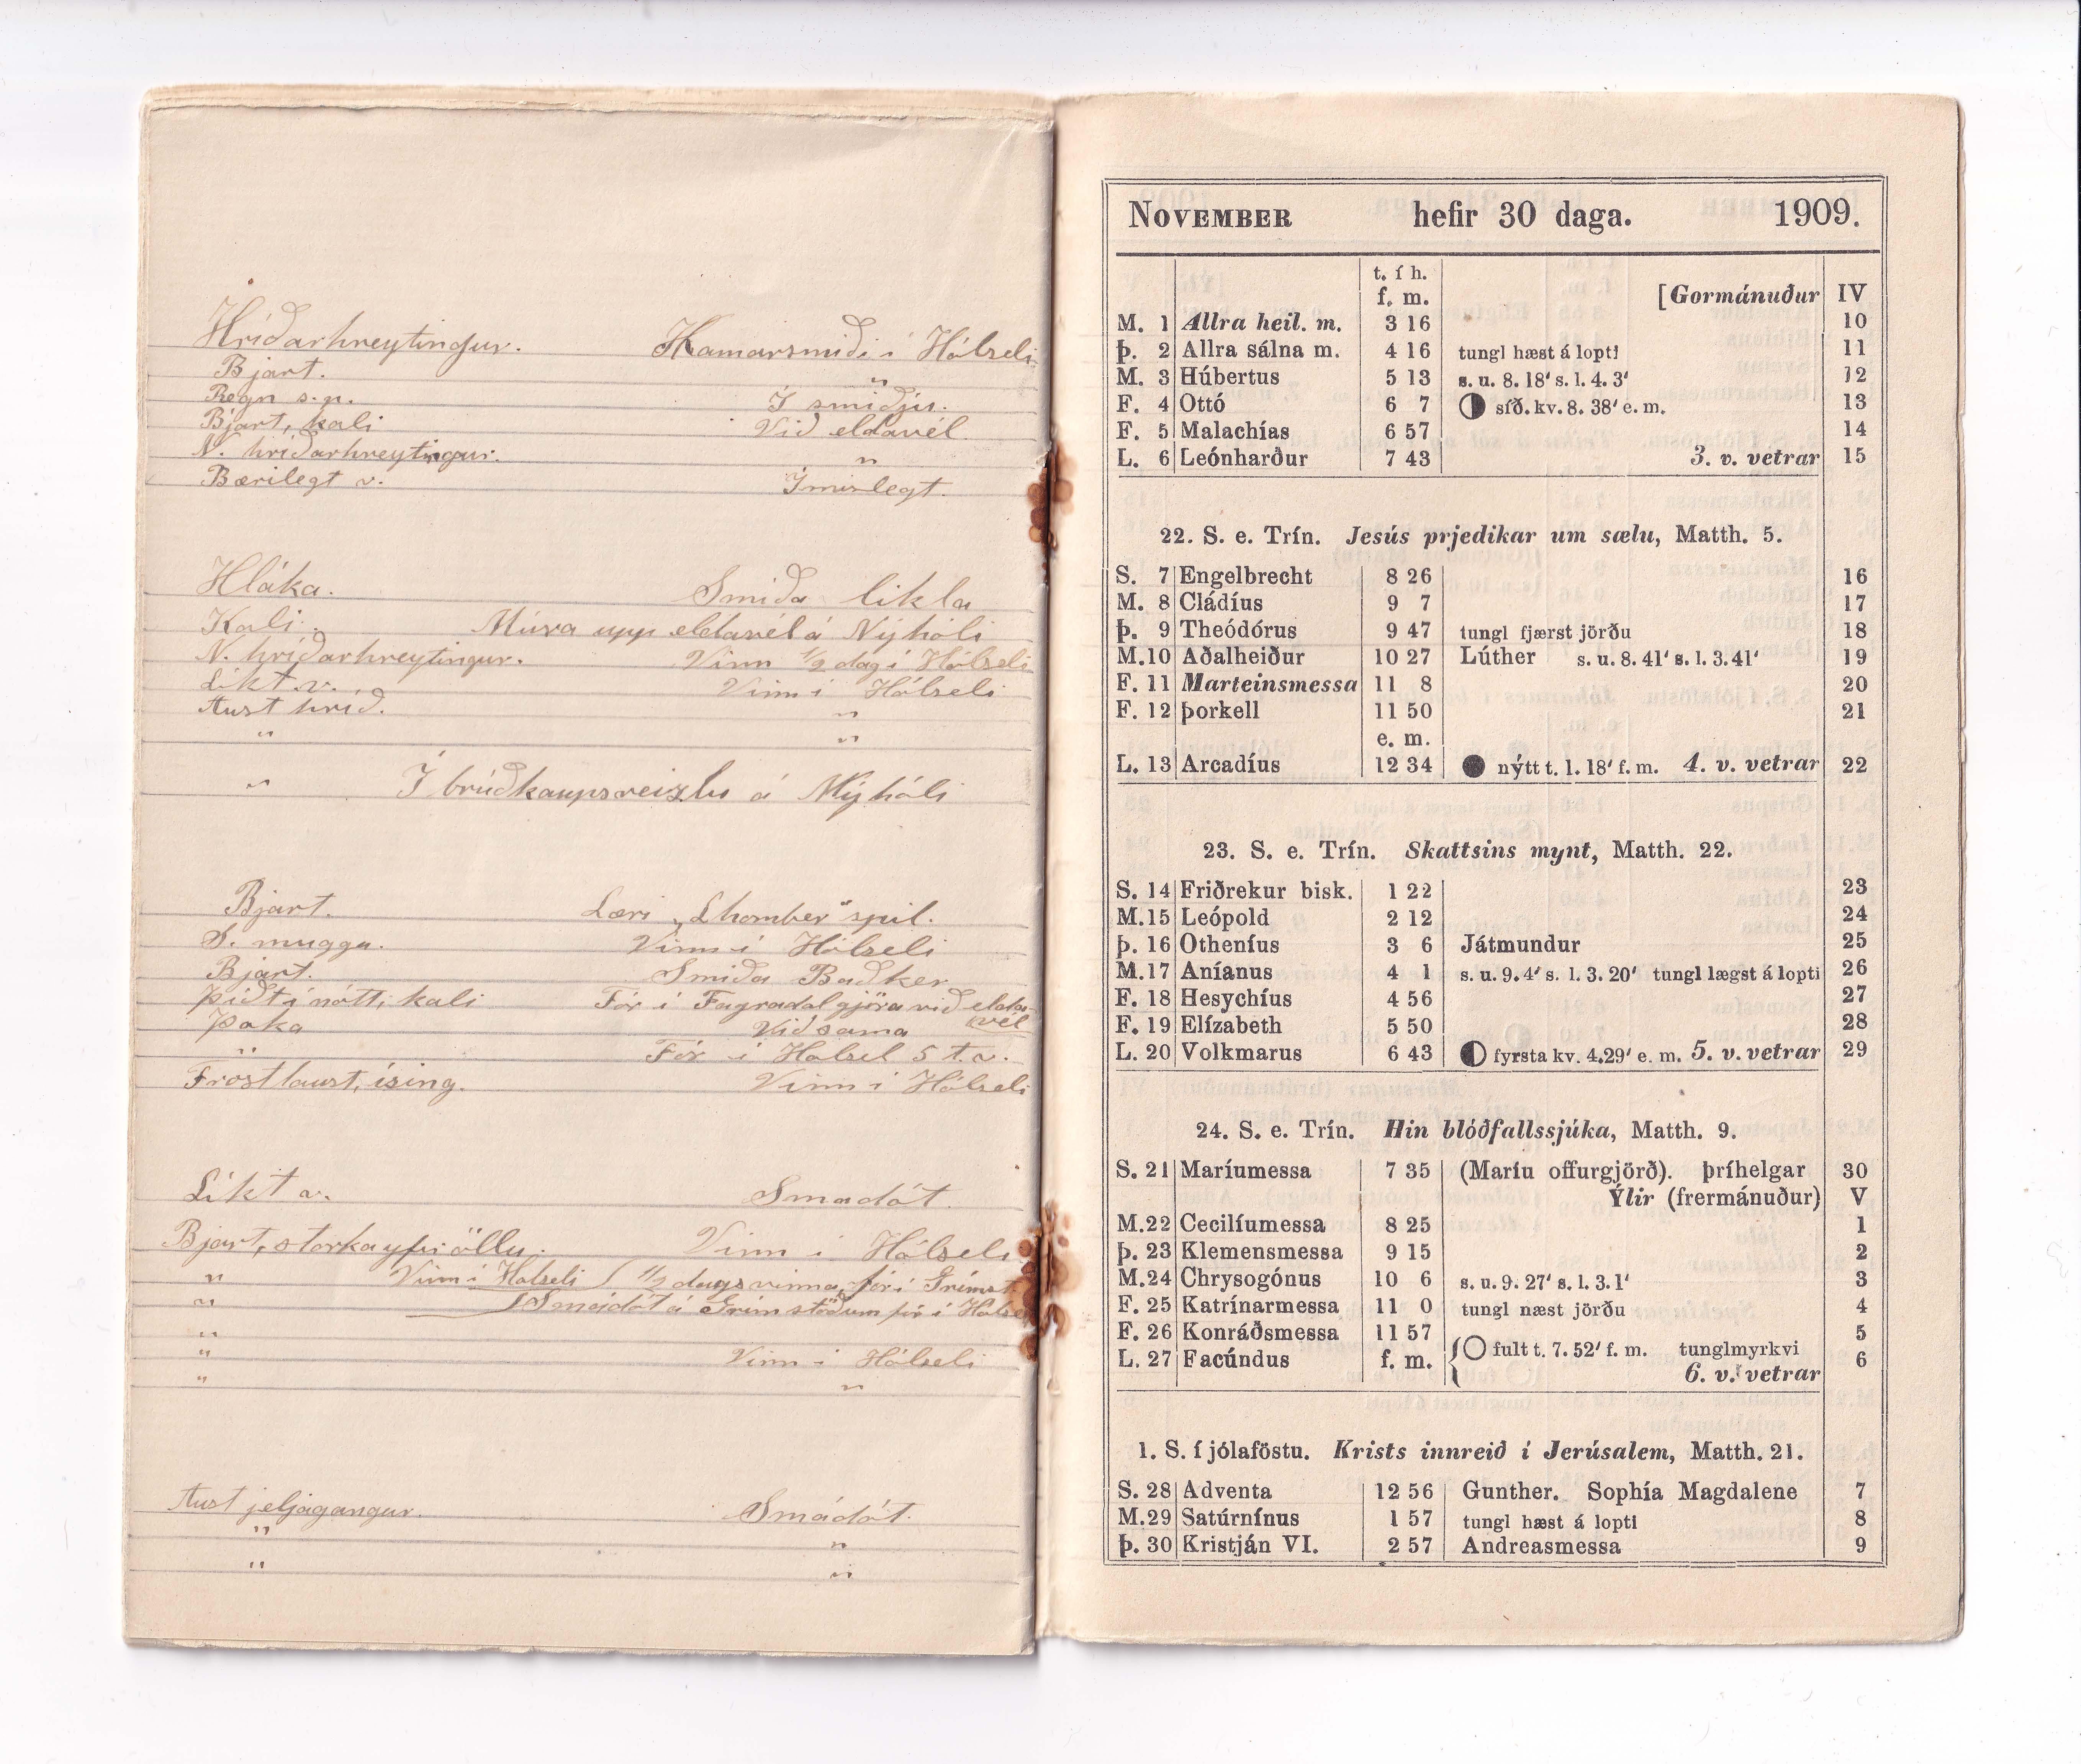 Hríðarhreytingur. Hamarsmiði í Hólseli
Bjart. "
Regn s.p. Í smiðju.
Bjart, kali Við eldavél.
N. hríðarhreytingur. "
Bærilegt v. Ímislegt.
Hláka. Smiða likla
Kali. Múra upp eldavél á Nýhóli
N. hríðarhreytingur. Vinn 1/2 dag í Hólseli
Líkt v. Vinn í Hólseli
Aust hríð. "
" "
" Í brúðkaupsveizlu á Nýhóli
Bjart. Læri „Lhomber" spil.
S. mugga. Vinn í Hólseli
Bjart. Smiða Baðker
Þiðt í nótt, kali Fór í Fagradal gjöra við elda-
vél
Þoka Við sama
" Fór í Hólsel 5 t.v.
Frostlaust, ísing. Vinn í Hólseli
Líkt v. Smádót.
Bjart, storka yfir öllu. Vinn í Hólseli
" Vinn í Hólseli 1/2 dags vinna, fór í Grímst
" Smádót á Grímstöðum fór í Hólsel
"
" Vinn í Hólseli
" "
Aust jeljagangur. Smádót.
" "
" "
NOVEMBER hefir 30 daga. 1909.
t. í h.
f. m. [Gormánuður IV
M. 1 Allra heil. m. 3 16 10
Þ. 2 Allra sálna m. 4 16 tungl hæst á lopti 11
M. 3 Húbertus 5 13 s. u. 8. 18' s. l. 4. 3' 12
F. 4 Ottó 6 7 síð. kv. 8. 38' e. m. 13
F. 5 Malachías 6 57 14
L. 6 Leónharður 7 43 3. v. vetrar 15
22. S. e. Trín. Jesús prjedikar um sælu, Matth. 5.
S. 7 Engelbrecht 8 26 16
M. 8 Cládíus 9 7 17
Þ. 9 Theódórus 9 47 tungl fjærst jörðu 18
M. 10 Aðalheiður 10 27 Lúther s. u. 8. 41' s. l. 3. 41' 19
F. 11 Marteinsmessa 11 8 20
F. 12 Þorkell 11 50 21
e. m.
L. 13 Arcadíus 12 34 nýtt t. 1. 18' f. m. 4. v. vetrar 22
23. S. e. Trín. Skattsins mynt, Matth. 22.
S. 14 Friðrekur bisk. 1 22 23
M. 15 Leópold 2 12 24
Þ. 16 Otheníus 3 6 Játmundur 25
M. 17 Aníanus 4 1 s. u. 9. 4' s. l. 3. 20' tungl lægst á lopti 26
F. 18 Hesychíus 4 56 27
F. 19 Elízabeth 5 50 28
L. 20 Volkmarus 6 43 fyrsta kv. 4.29' e. m. 5. v. vetrar 29
24. S. e. Trín. Hin blóðfallssjúka, Matth. 9.
S. 21 Maríumessa 7 35 (Maríu offurgjörð). Þríhelgar 30
Ýlir (frermánuður) V
M. 22 Cecilíumessa 8 25 1
Þ. 23 Klemensmessa 9 15 2
M. 24 Chrysogónus 10 6 s. u. 9. 27' s. l. 3. 1' 3
F. 25 Katrínarmessa 11 0 tungl næst jörðu 4
F. 26 Konráðsmessa 11 57 5
L. 27 Facúndus f. m. fult t. 7. 52' f. m. tunglmyrkvi 6
6. v. vetrar
1. S. í jólaföstu. Krists innreið í Jerúsalem, Matth. 21.
S. 28 Adventa 12 56 Gunther. Sophía Magdalene 7
M. 29 Satúrnínus 1 57 tungl hæst á lopti 8
Þ. 30 Kristján VI. 2 57 Andreasmessa 9